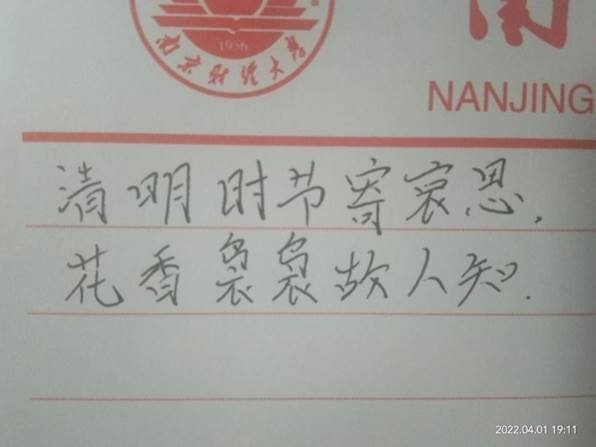 1956
南京财经大学
南
NANJING
清明时节寄哀思,
花香袅袅故人知.
2022.04.01 19:11